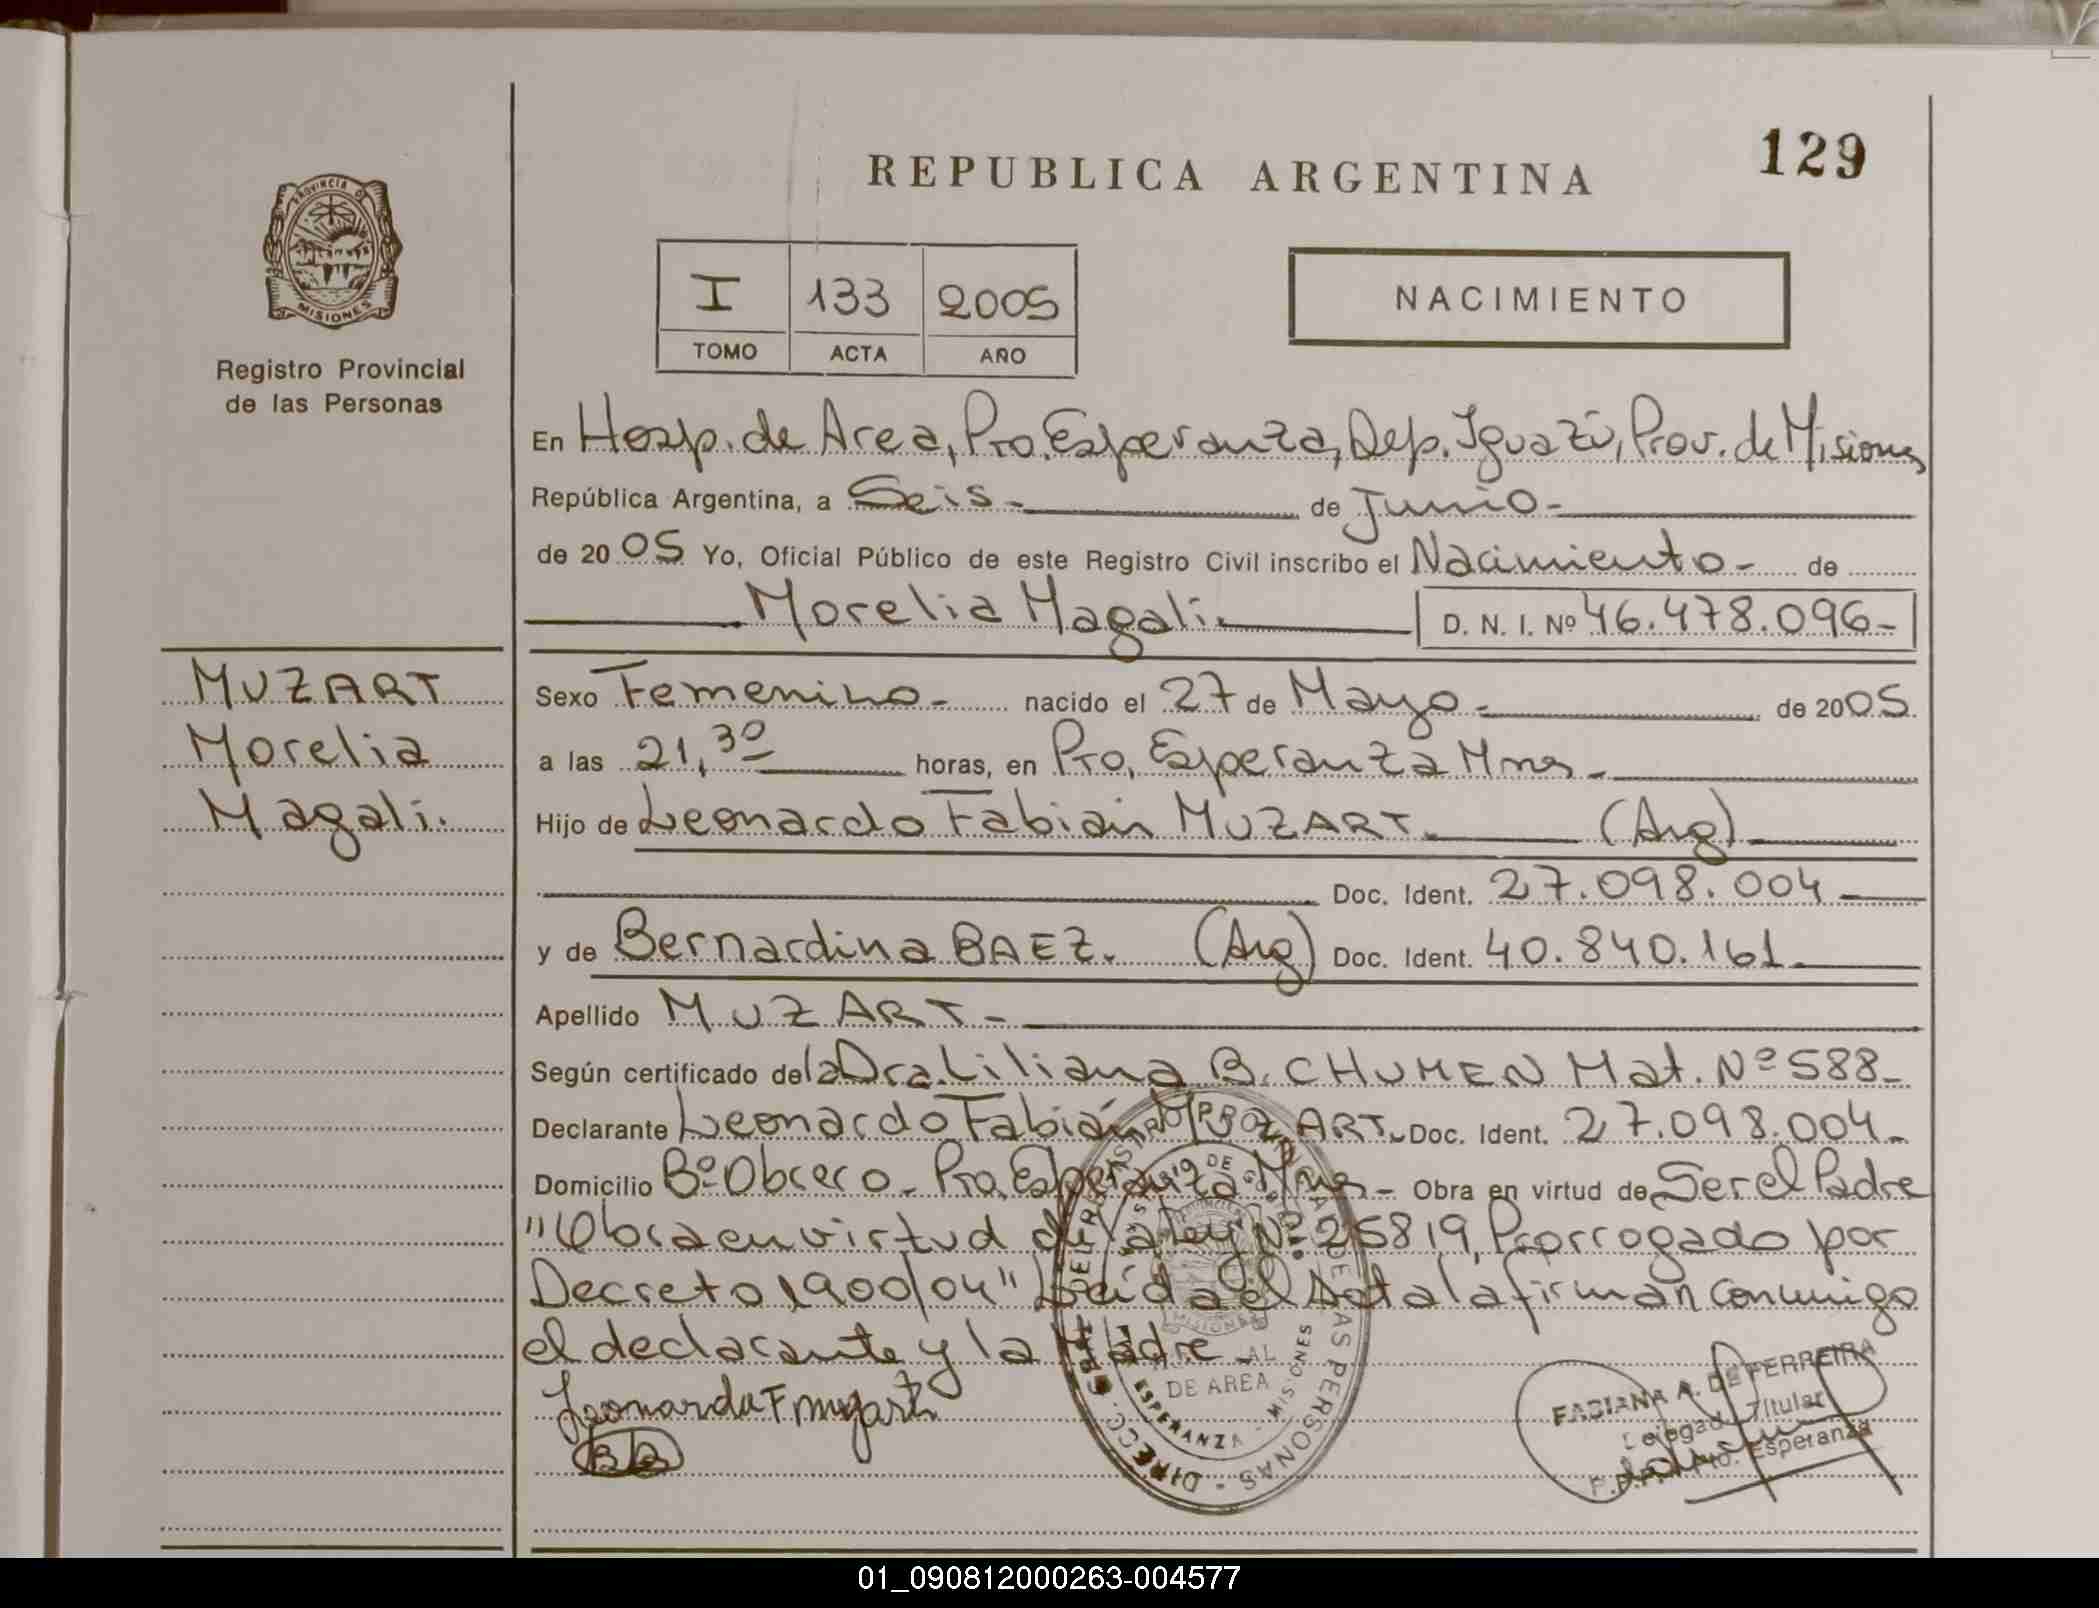 REPUBLICA ARGENTINA
129
PROVINCIA DE
MISIONES
Registro Provincial
de las Personas
I 133 2005
TOMO ACTA AÑO
NACIMIENTO
En Hosp. de Area, Pto. Esperanza, Dep. Iguazú, Prov. de Misiones
República Argentina, a Seis- de Junio-
de 2005 Yo, Oficial Público de este Registro Civil inscribo el Nacimiento- de
Morelia Magali. D. N. I. Nº 46.478.096-
MUZART
Morelia
Magali.
Sexo Femenino- nacido el 27 de Mayo- de 2005.
a las 21,30 horas, en Pto. Esperanza Mnes-
Hijo de Leonardo Fabián MUZART. (Arg)
Doc. Ident. 27.098.004
y de Bernardina BAEZ. (Arg) Doc. Ident. 40.840.161.
Apellido MUZART-
Según certificado de la Dra. Liliana B. CHUMEN Mat. Nº 588-
Declarante Leonardo Fabián MUZART. Doc. Ident. 27.098.004-
Domicilio Bº Obrero- Pto. Esperanza Mnes- Obra en virtud de Ser el Padre
"Obra en virtud de la Ley Nº 25819, Prorrogado por
Decreto 1900/04" Leída el Acta la firman conmigo
el declarante y la Madre-
Leonardo F muzart
BB
DIRECC. GRAL. DEL REGISTRO PROVINCIAL DE LAS PERSONAS
DE AREA
ESPERANZA - MISIONES
MISIONES
FABIANA A. DE FERREIRA
Delegada Titular
Pto. Esperanza
01_090812000263-004577